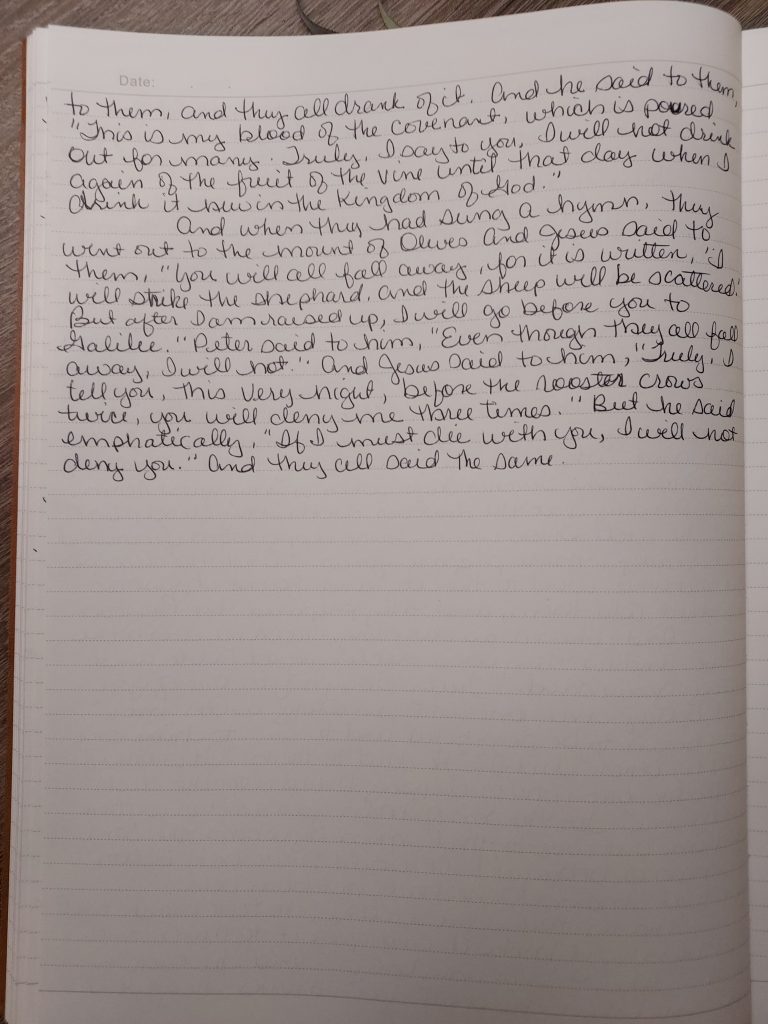 Date:
to them, and they all drank of it. And he said to them,
"This is my blood of the covenant, which is poured
out for many. Truly, I say to you, I will not drink
again of the fruit of the vine until that day when I
drink it new in the Kingdom of God."
And when they had sung a hymn, they
went out to the mount of Olives and Jesus said to
them, "You will all fall away, for it is written, "I
will strike the shephard, and the sheep will be scattered."
But after I am raised up, I will go before you to
Galilee." Peter said to him, "Even though they all fall
away, I will not." And Jesus said to him, "Truly, I
tell you, this very night, before the rooster crows
twice, you will deny me three times." But he said
emphatically, "If I must die with you, I will not
deny you." And they all said the same.